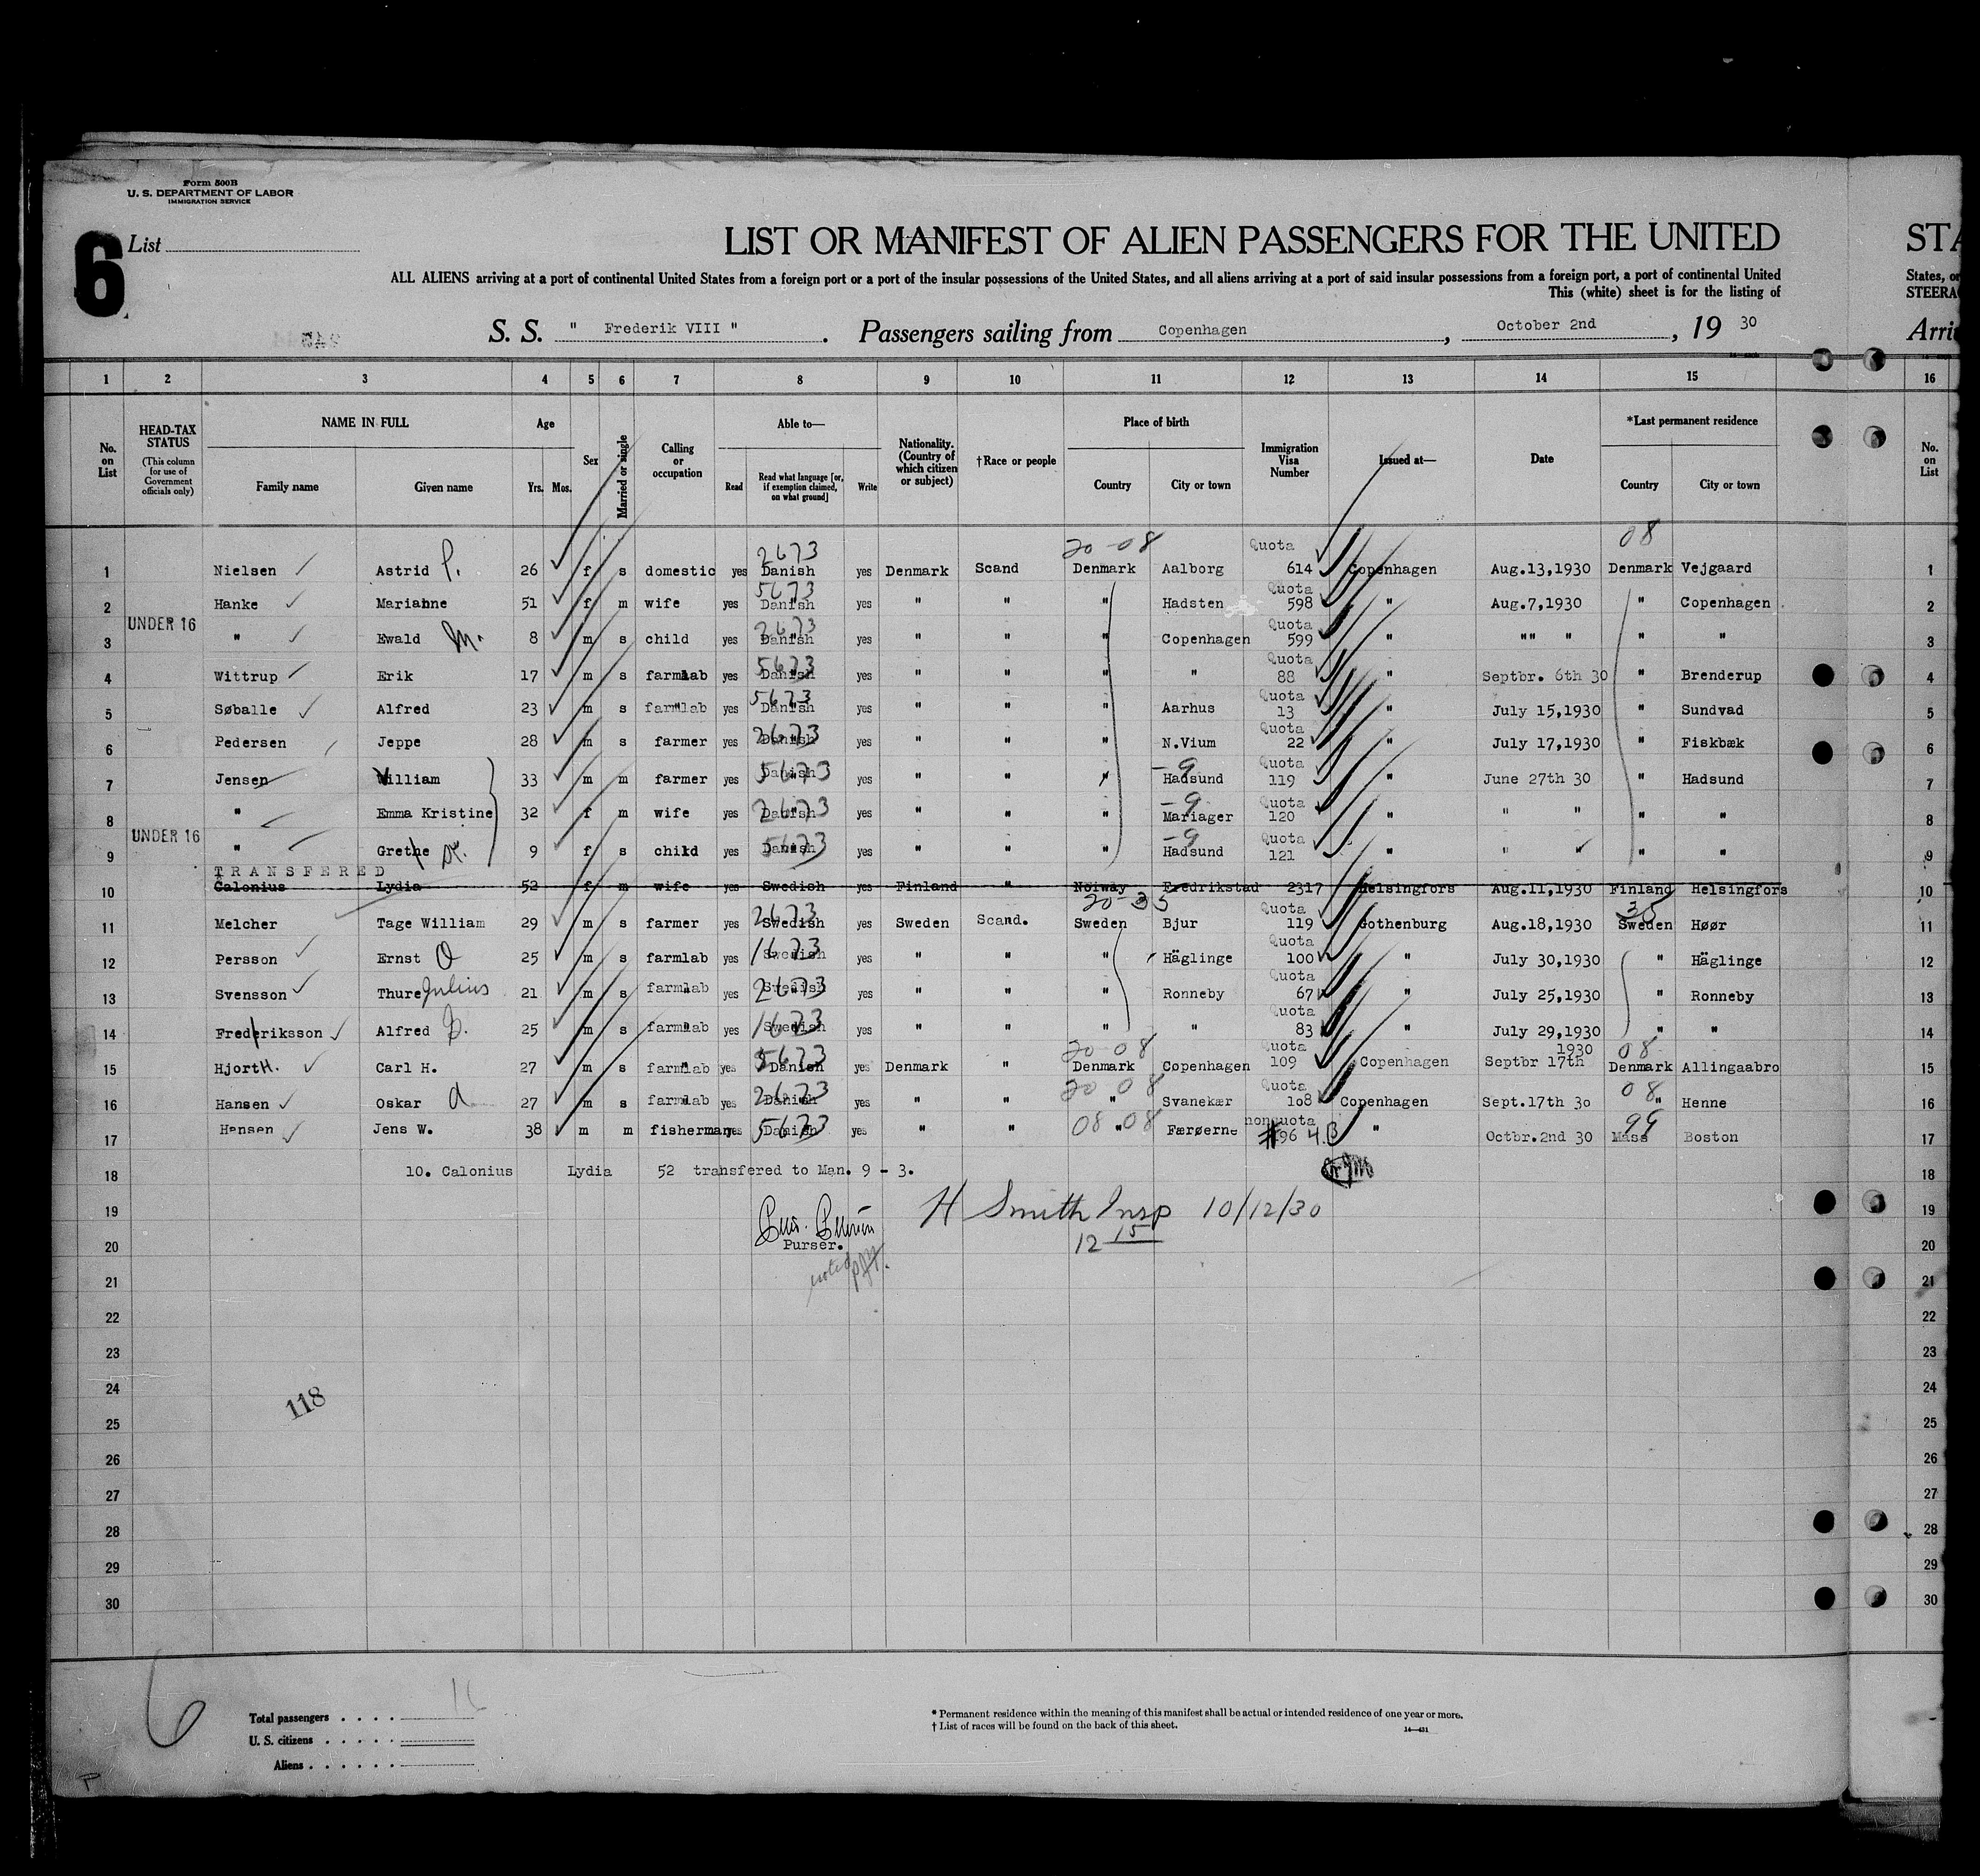 Form 500B
U. S. DEPARTMENT OF LABOR
IMMIGRATION SERVICE
6 List
LIST OR MANIFEST OF ALIEN PASSENGERS FOR THE UNITED STA
ALL ALIENS arriving at a port of continental United States from a foreign port or a port of the insular possessions of the United States, and all aliens arriving at a port of said insular possessions from a foreign port, a port of continental United States, or
This (white) sheet is for the listing of STEERA
S. S. " Frederik VIII ". Passengers sailing from Copenhagen, October 2nd, 19 30 Arri
1 2 3 4 5 6 7 8 9 10 11 12 13 14 15 16
No. on List HEAD-TAX STATUS (This column for use of Government officials only) NAME IN FULL Family name Given name Age Yrs. Mos. Sex Married or single Calling or occupation Able to— Read Read what language [or, if exemption claimed, on what ground] Write Nationality. (Country of which citizen or subject) †Race or people Place of birth Country City or town Immigration Visa Number Issued at— Date *Last permanent residence Country City or town No. on List
2673 20-08 Quota 08
1 Nielsen Astrid P. 26 f s domestic yes Danish yes Denmark Scand Denmark Aalborg 614 Copenhagen Aug.13,1930 Denmark Vejgaard 1
5673 Quota
2 Hanke Marianne 51 f m wife yes Danish yes " " " Hadsten 598 " Aug.7,1930 " Copenhagen 2
UNDER 16 2673 Quota
3 " Ewald M. 8 m s child yes Danish yes " " " Copenhagen 599 " "" " " " 3
5673 Quota
4 Wittrup Erik 17 m s farmlab yes Danish yes " " " " 88 " Septbr. 6th 30 " Brenderup 4
5673 Quota
5 Søballe Alfred 23 m s farmlab yes Danish yes " " " Aarhus 13 " July 15,1930 " Sundvad 5
2673 Quota
6 Pedersen Jeppe 28 m s farmer yes Danish yes " " " N.Vium 22 " July 17,1930 " Fiskbæk 6
5673 -9 Quota
7 Jensen William 33 m m farmer yes Danish yes " " " Hadsund 119 " June 27th 30 " Hadsund 7
2673 -9 Quota
8 " Emma Kristine 32 f m wife yes Danish yes " " " Mariager 120 " " " " " 8
UNDER 16 5673 -9 Quota
9 " Grethe 9 f s child yes Danish yes " " " Hadsund 121 " " " " " 9
TRANSFERED
10 Calonius Lydia 52 f m wife yes Swedish yes Finland " Norway Fredrikstad 2317 Helsingfors Aug.11,1930 Finland Helsingfors 10
2673 20-35 Quota 35
11 Melcher Tage William 29 m s farmer yes Swedish yes Sweden Scand. Sweden Bjur 119 Gothenburg Aug.18,1930 Sweden Høør 11
1673 Quota
12 Persson Ernst O 25 m s farmlab yes Swedish yes " " " Häglinge 100 " July 30,1930 " Häglinge 12
2673 Quota
13 Svensson Thure Julius 21 m s farmlab yes Swedish yes " " " Ronneby 67 " July 25,1930 " Ronneby 13
1673 Quota
14 Frederiksson Alfred 25 m s farmlab yes Swedish yes " " " " 83 " July 29,1930 " " 14
5673 20-08 Quota 1930 08
15 Hjorth. Carl H. 27 m s farmlab yes Danish yes Denmark " Denmark Copenhagen 109 Copenhagen Septbr 17th Denmark Allingaabro 15
2673 20 08 Quota 08
16 Hansen Oskar A 27 m s farmlab yes Danish yes " " " Svanekær 108 Copenhagen Sept.17th 30 " Henne 16
5673 08 08 nonquota 99
17 Hensen Jens W. 38 m m fisherman yes Danish yes " " " Færøerne #96 4.B " Octbr.2nd 30 Mass Boston 17
18 10. Calonius Lydia 52 transfered to Man. 9 - 3. 18
19 H Smith Insp 10/12/30 19
20 Purser. 12 15 20
noted
21 21
22 22
23 23
24 24
118
25 25
26 26
27 27
28 28
29 29
30 30
6
Total passengers 16
U. S. citizens
Aliens
* Permanent residence within the meaning of this manifest shall be actual or intended residence of one year or more.
† List of races will be found on the back of this sheet. 14—431
P